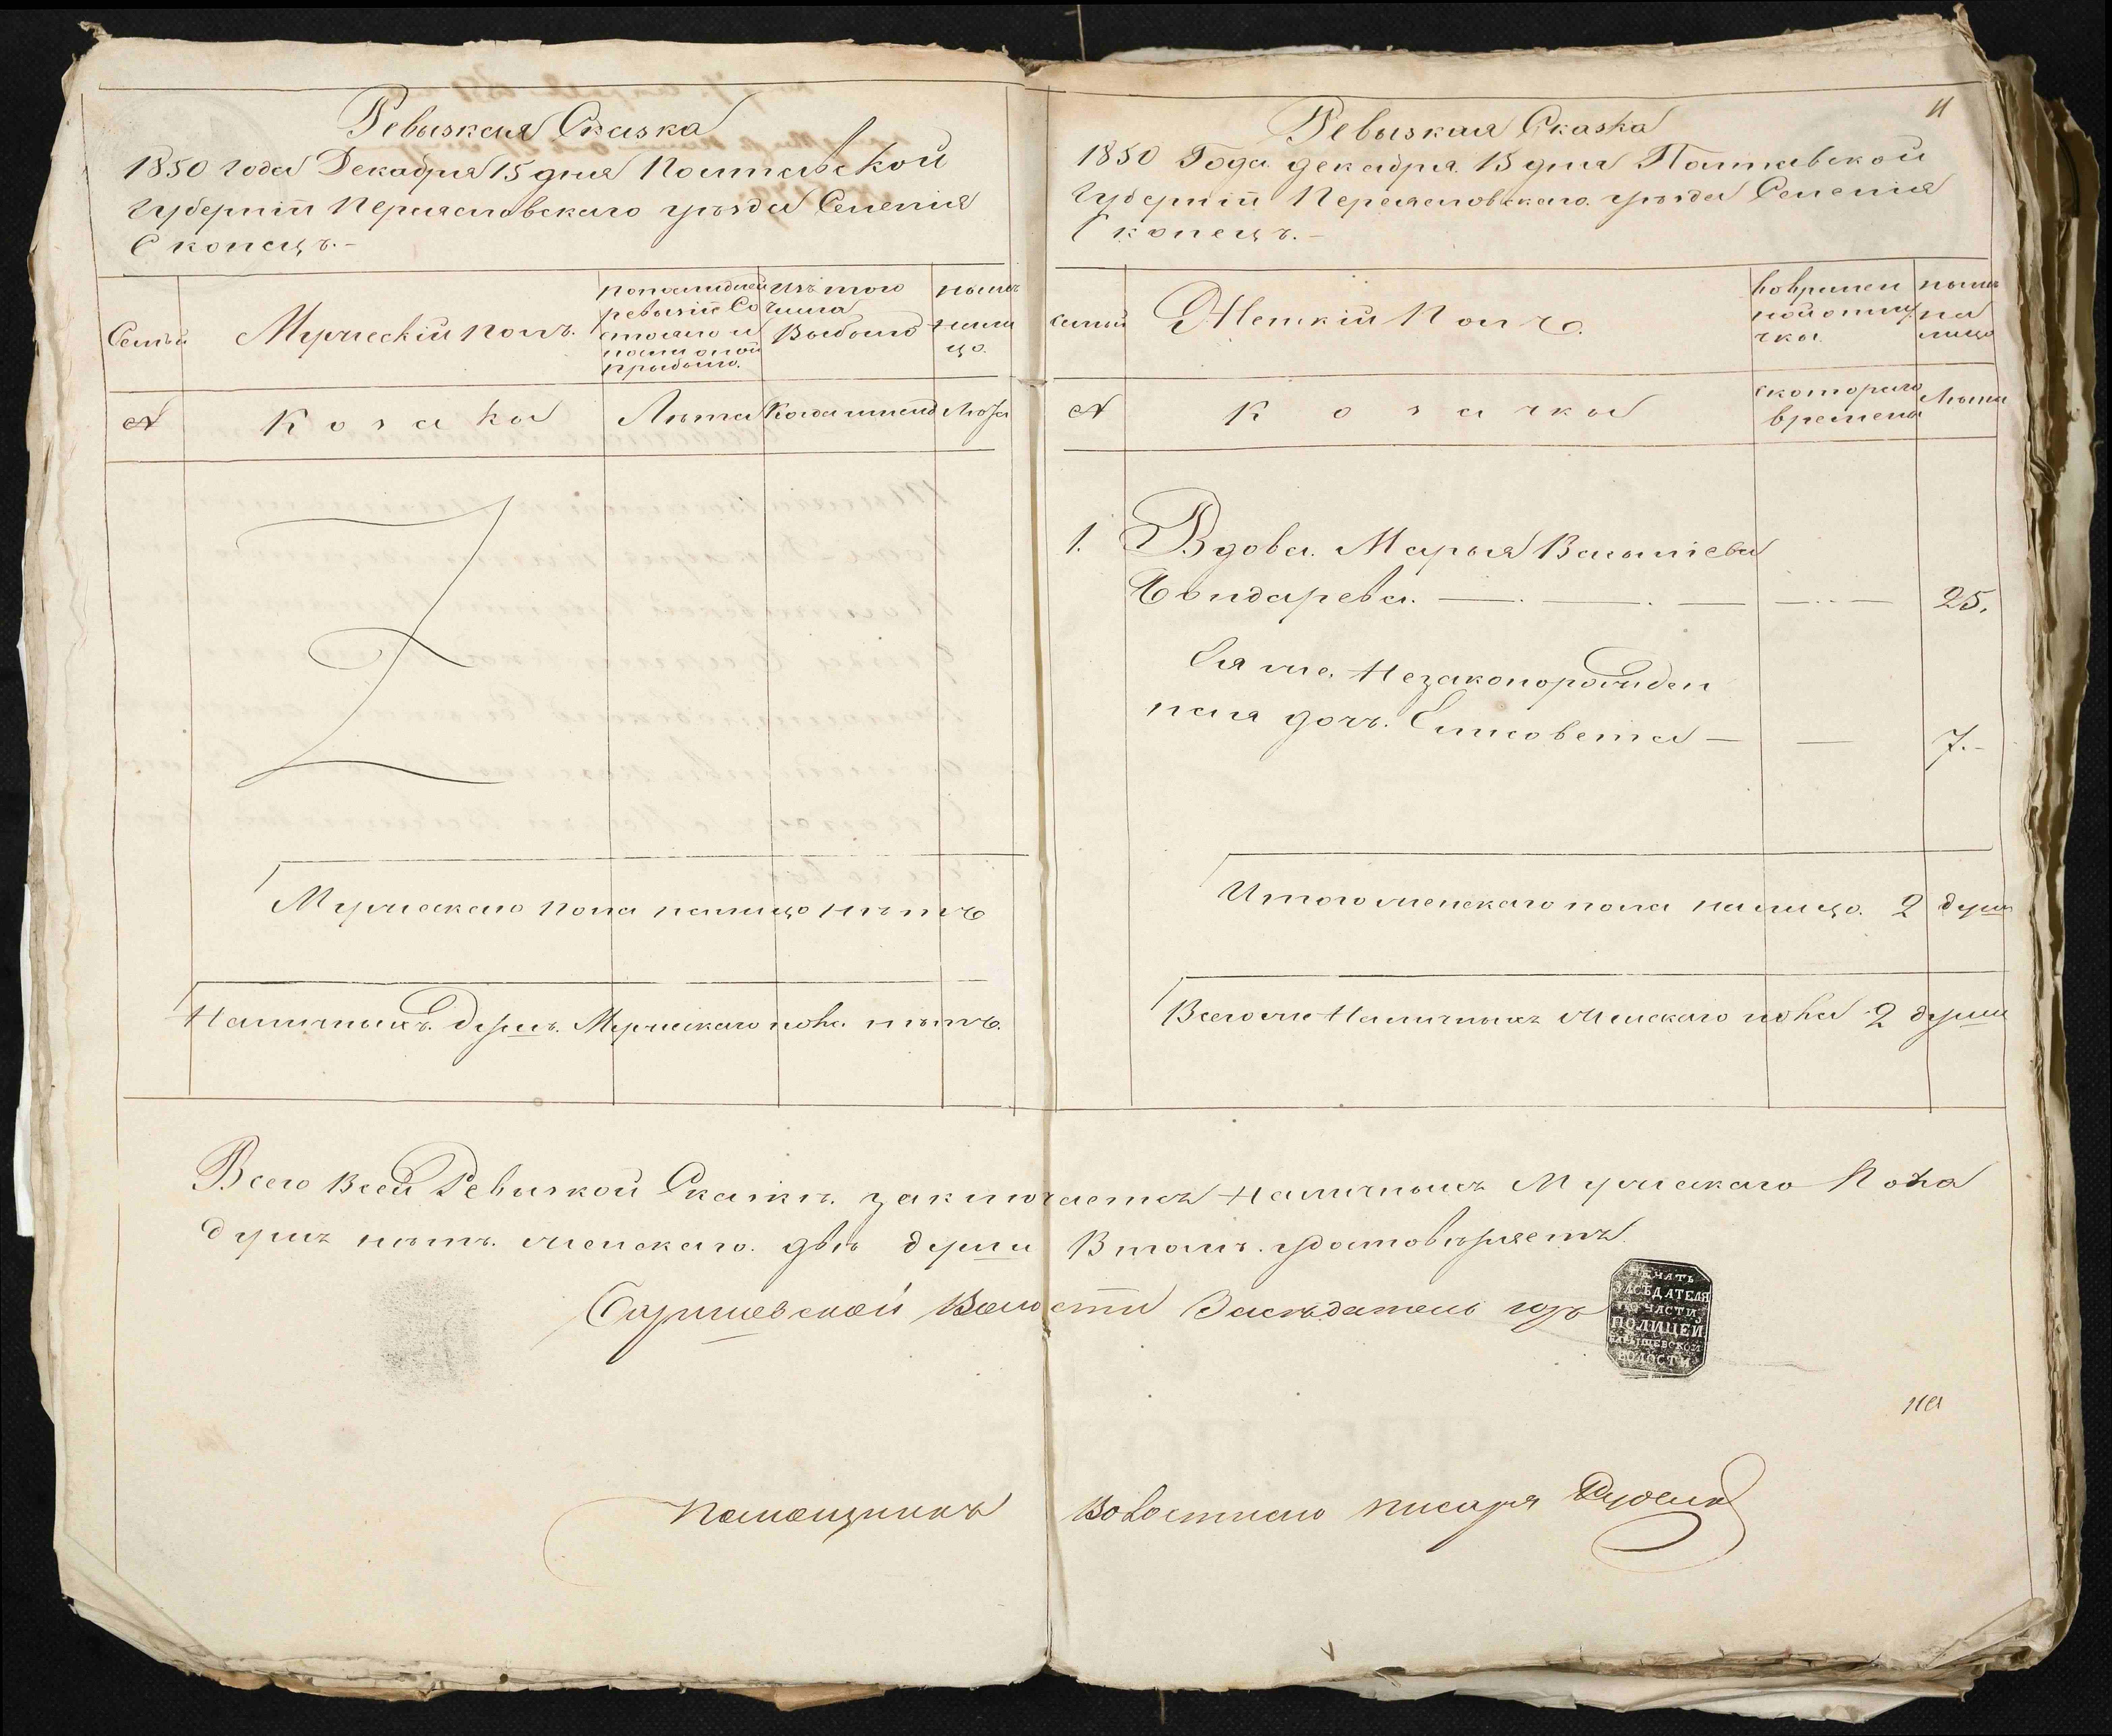 Ревизкая Сказка
1850 года Декабря 15 дня Полтавской
Губернiи Переяславского уѣзда Селенiя
Скопецъ.-
Семьи
Мужескiй полъ.
По последней
ревизiи Со
стояло и
после оной
прибыло.
Изъ того
числа
Выбыло
ныне
нали
цо.
№
Козаки
Лѣта
Когда именно
Лѣта
Мужескаго пола налицо нѣтъ
Наличныхъ душъ Мужескаго пола нѣтъ.
11
Ревизкая Сказка
1850 Года декабря 15 дня Полтавской
Губернiи Переясловскаго уѣзда Селенiя
Скопецъ.-
Семьи
Женскiй Полъ.
Вовремен
ной отлу
чки.
ныне
на
лицо
№
Козачки
Скотораго
времени
Лѣта
1. Вдова Марья Васильева
Бондарева. — — — — 25.
Ея же Незаконорожден
ная дочь. Елисовета — — 7.-
Итого женскаго пола налицо. 2 души
Всего же Наличныхъ Женскаго пола 2 души
Всего Всей Ревизкой Сказкѣ заключается Наличныхъ Мужескаго Пола
душъ нѣтъ. женскаго. двѣ души Втомъ. удостовѣряетъ
Барышевской Волости Заседатель
ПЕЧАТЬ
ЗАСѢДАТЕЛЯ
ПО ЧАСТИ
ПОЛИЦЕЙ
БАРЫШЕВСКОЙ
ВОЛОСТИ
на
Помощникъ Волостнаго писаря